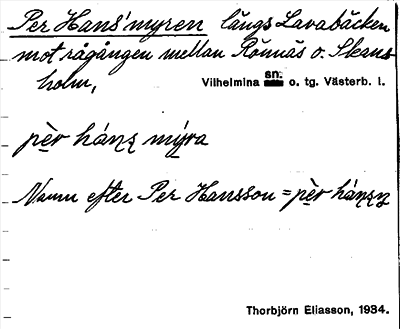 Per Hans'myren längs Lavabäcken
mot rågången mellan Rönnäs o. Skans-
holm,
Vilhelmina sn. o. tg. Västerb. l.
pèr hánʂ mýra
Namn efter Per Hansson = pèr hánʂn̥
Thorbjörn Eliasson, 1934.